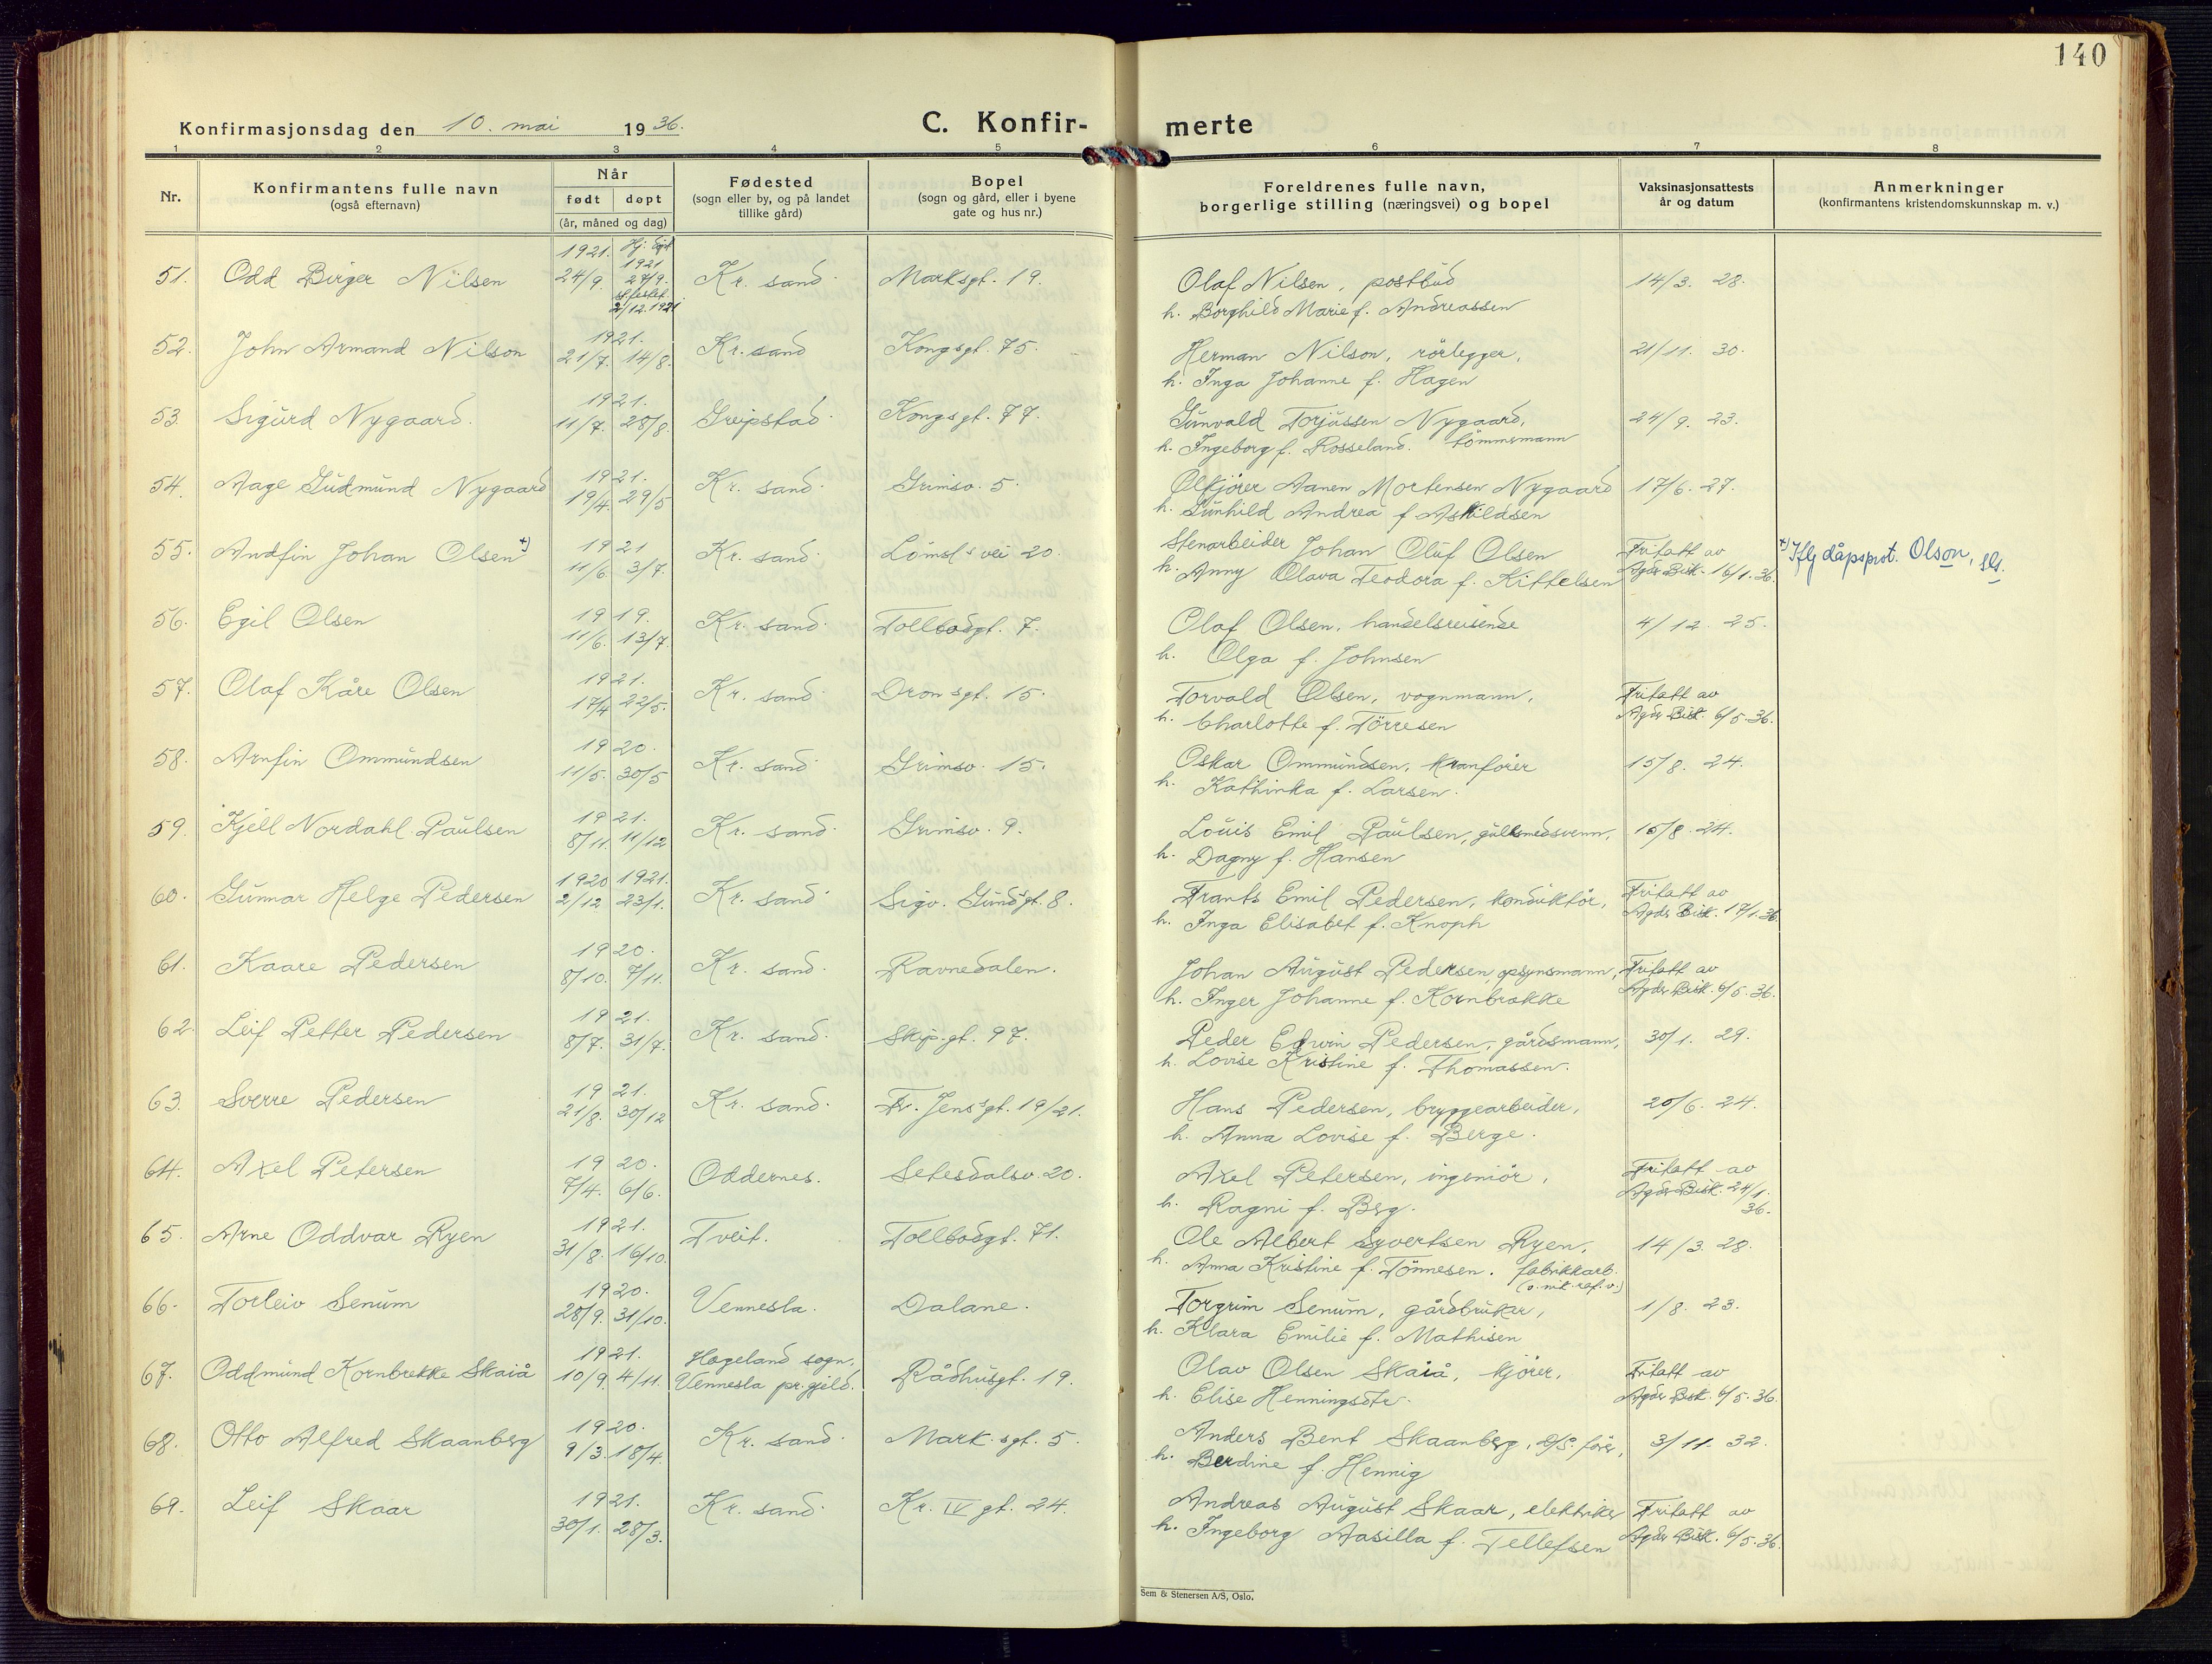 140
Konfirmasjonsdag den 10. mai 1936.
C. Konfir-
merte
1 2 3 4 5 6 7 8
Nr.
Konfirmantens fulle navn
(også efternavn)
Når
født døpt
(år, måned og dag)
Fødested
(sogn eller by, og på landet
tillike gård)
Bopel
(sogn og gård, eller i byene
gate og hus nr.)
Foreldrenes fulle navn,
borgerlige stilling (næringsvei) og bopel
Vaksinasjonsattests
år og datum
Anmerkninger
(konfirmantens kristendomskunnskap m. v.)
1921. Hj: døpt 1921
51. Odd Birger Nilsen 24/9. 27/9. Kr. sand. Marksgt. 19. Olaf Nilsen, postbud 14/3. 28.
st. festet. 2/12.1921. h. Borghild Marie f. Andreassen
1921.
52. John Armand Nilson 21/7. 14/8. Kr. sand Kongsgt. 75. Herman Nilson, rørlegger, 21/11. 30.
h. Inga Johanne f. Hagen
1921.
53. Sigurd Nygaard. 11/7. 28/8. Greipstad. Kongsgt. 77. Gunvald Torjussen Nygaard, 24/9. 23.
h. Ingeborg f. Rosseland. tömmsmann
1921.
54. Aage Gudmund Nygaard 19/4. 29/5 Kr. sand. Grimsv. 5. Ølkjører Aanen Mortensen Nygaard 17/6. 27.
h. Gunhild Andrea f Askildsen
1921
55. Andfin Johan Olsen +) 11/6. 3/7. Kr. sand. Lömsl's vei 20. Stenarbeider Johan Oluf Olsen Fritatt av +) Iflg dåpsprot. Olson, sls.
h. Anny Olava Teodora f. Kittelsen Agder Bisk. 16/1. 36.
1919.
56. Egil Olsen 11/6. 13/7. Kr. sand. Tollbodgt. 7. Olaf Olsen, handelsreisende 4/12. 25.
h. Olga f. Johnsen
1921.
57. Olaf Kåre Olsen 17/4 22/5. Kr. sand. Dronsgt. 15. Torvald Olsen, vognmann, Fritatt av
h. Charlotte f. Törresen Agder Bisk. 6/5. 36.
1920.
58. Arnfin Ommundsen 11/5. 30/5 Kr. sand. Grimsv. 15. Oskar Ommundsen, kranförer 15/8. 24.
h. Kathinka f. Larsen.
1921.
59. Kjell Nordahl Paulsen 8/11. 11/12 Kr. sand. Grimsv. 9. Louis Emil Paulsen, gullsmedsvenn, 15/8. 24.
h. Dagny f. Hansen
1920 1921.
60. Gunnar Helge Pedersen 2/12 23/1. Kr. sand. Sigv. Gundsgt. 8. Frants Emil Pedersen, konduktör, Fritatt av
h. Inga Elisabet f. Knoph Agder Bisk. 17/1. 36.
1920.
61. Kaare Pedersen 8/10. 7/11. Kr. sand. Ravnedalen. Johan August Pedersen, opsynsmann, Fritatt av
h. Inger Johanne f. Kornbrekke Agder Bisk. 6/5. 36.
1921.
62. Leif Petter Pedersen 8/7. 31/7. Kr. sand. Skip.gt. 97. Peder Edwin Pedersen, gårdsmann, 30/1. 29.
h. Lovise Kristine f. Thomassen.
1921.
63. Sverre Pedersen 21/8. 30/12 Kr. sand. Fr. Jens'sgt. 19/21. Hans Pedersen, bryggearbeider, 20/6. 24.
h. Anna Lovise f. Berge.
1920.
64. Axel Petersen 7/4. 6/6. Oddernes. Setesdalsv. 20. Axel Petersen, ingeniör, Fritatt av
h. Ragni f. Berg. Agder Bisk. 24/1. 36.
1921.
65. Arne Oddvar Ryen 31/8. 16/10. Tveit. Tollbodgt. 71. Ole Albert Syvertsen Ryen, 14/3. 28.
h. Anna Kristine f. Tönnesen. fabrikkarb.
1920.
66. Torleiv Senum 28/9. 31/10. Vennesla. Dalane. Torgrim Senum, gårdbruker, 1/8. 23.
h. Klara Emilie f. Mathisen
1921. Hægeland sogn,
67. Oddmund Kornbrekke Skaiå 10/9. 4/11. Vennesla pr.gjeld. Rådhusgt. 19. Olav Olsen Skaiå, kjörer, Fritatt av
h. Elise Henningsdtr. Agder Bisk. 6/5. 36.
1920.
68. Otto Alfred Skaanberg 9/3. 18/4. Kr. sand. Mark.sgt. 5. Anders Bent Skaanberg, D/S. förer, 3/11. 32.
h. Berdine f. Hennig
1921.
69. Leif Skaar 30/1. 28/3. Kr. sand. Kr. IV gt. 24. Andreas August Skaar, elektriker Fritatt av
h. Ingeborg Aasilla f. Tellefsen Agder Bisk. 6/5. 36.
Sem & Stenersen A/S, Oslo.